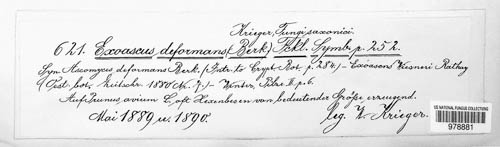 Krieger, Fungi saxonici.
621. Exoascus deformans (Berk.) Fckl. Symb. p. 252.
Syn. Ascomyces deformans Berk. (Intr. to Crypt. Bot. p. 284.) – Exoascus Wiesneri Rathay
(Öst. bot. Zeitschr. 1880 No. 7.) – Winter, Pilze II. p. 6.
Auf Prunus avium L., oft Hexenbesen von bedeutender Größe erzeugend.
Mai 1889 u. 1890. leg. W. Krieger.
US NATIONAL FUNGUS COLLECTIONS
978881